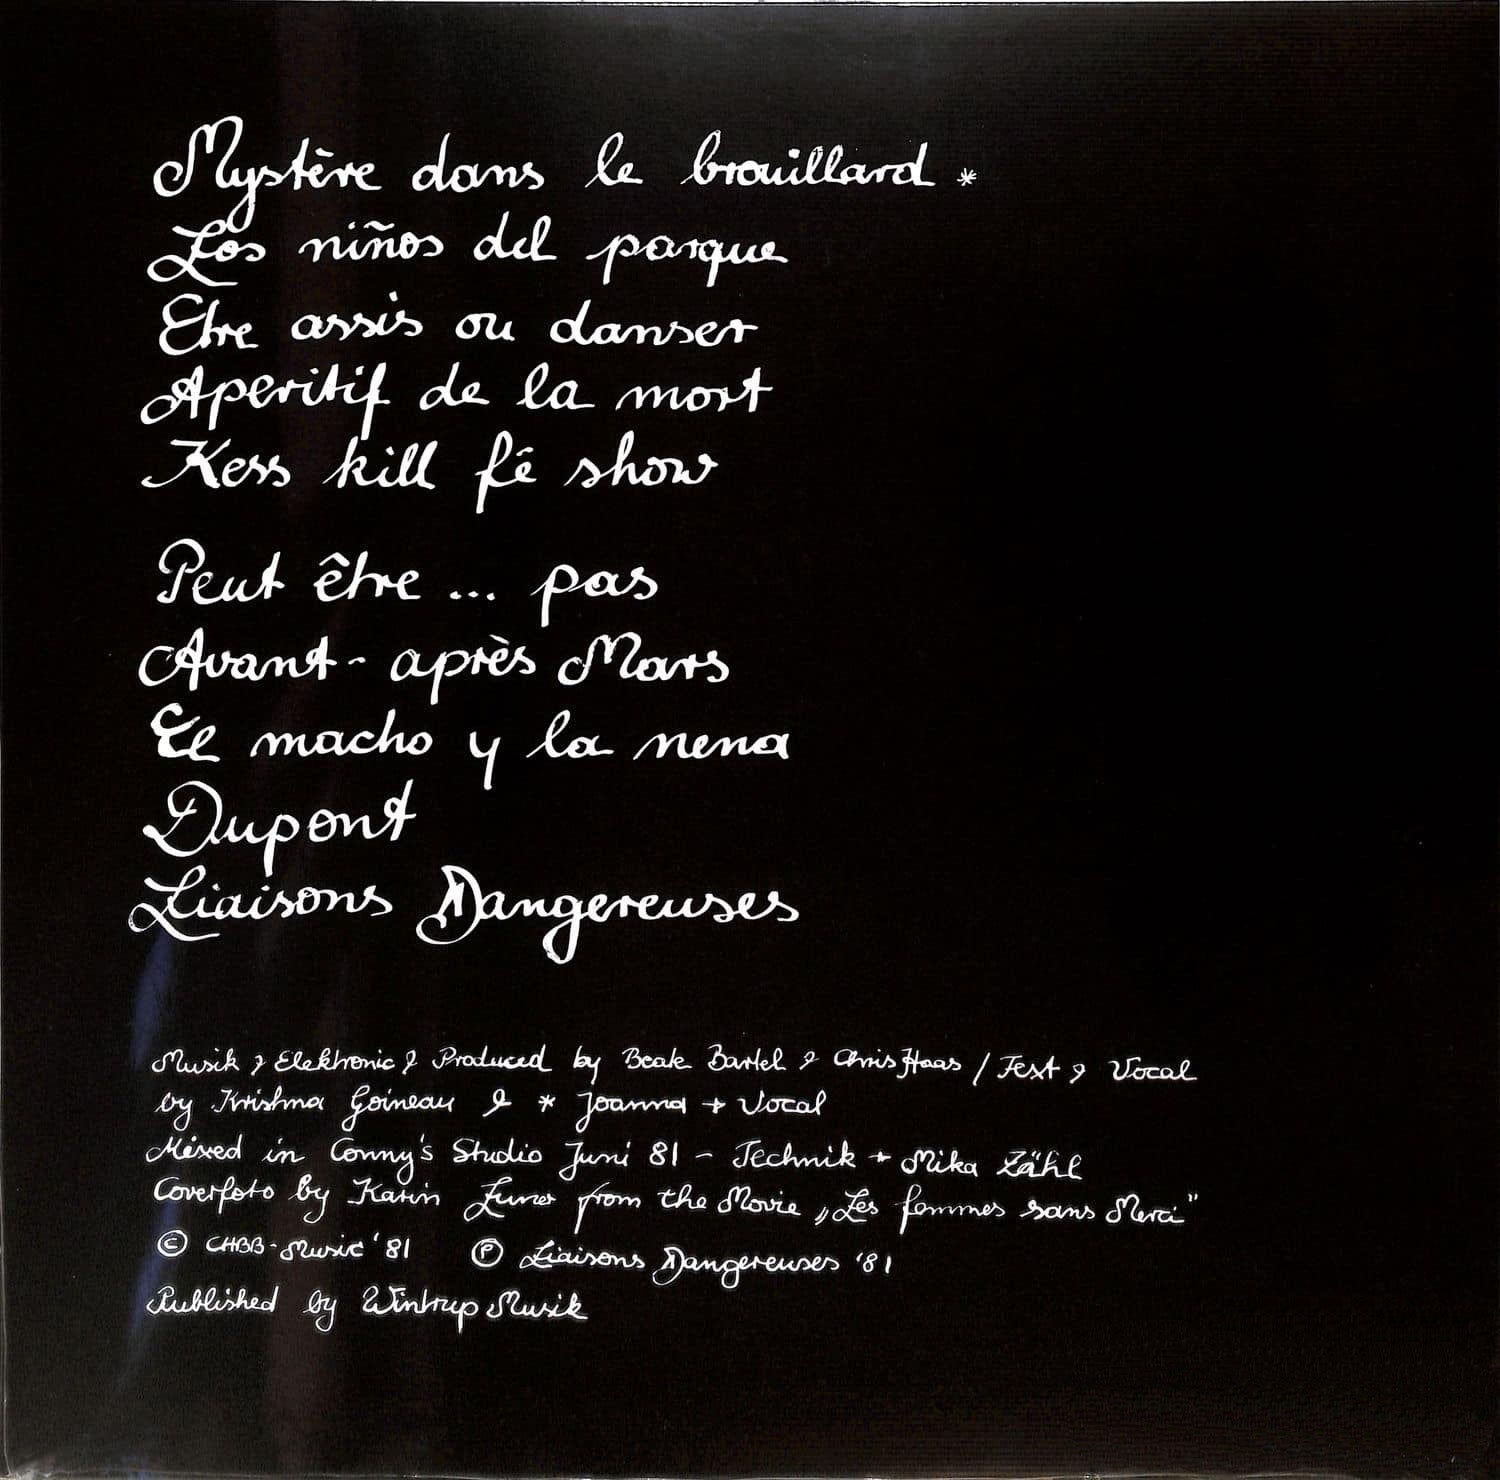 Mystère dans le brouillard *
Los niños del parque
Etre assis ou danser
Aperitif de la mort
Kess kill fê show
Peut être ... pas
Avant - après Mars
El macho y la nena
Dupont
Liaisons Dangereuses
Musik & Elektronic & Produced by Beate Bartel & Chris Haas / Text & Vocal
by Krishna Goineau & * Joanna + Vocal
Mixed in Conny's Studio Juni 81 - Technik + Mika Zähl
Coverfoto by Karin from the Movie „Les femmes sans Merci"
© CHBB-Music '81 ℗ Liaisons Dangereuses '81
Published by Wintrup Musik